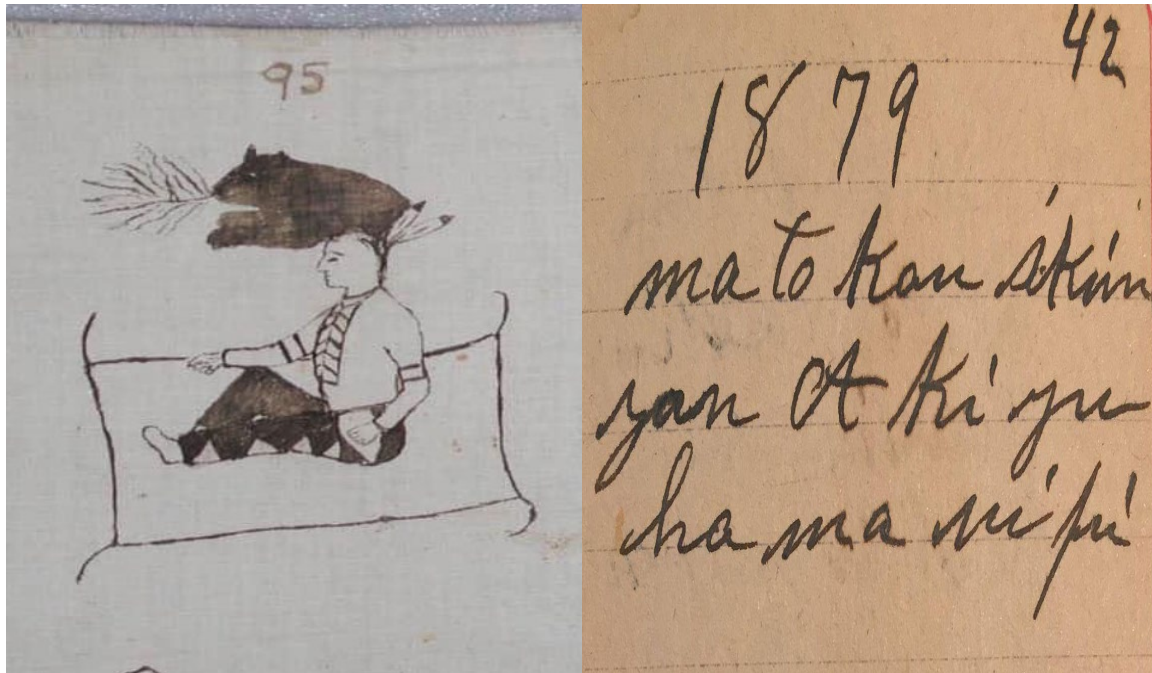 95
42
1879
ma to kan śkin
yan Ot ki yu
ha ma ni pi